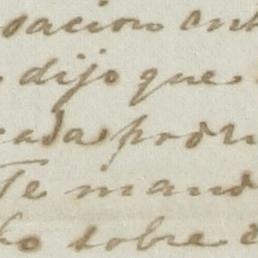 sacion ent
dijo que
cada podr
Te mand
ho sobre e